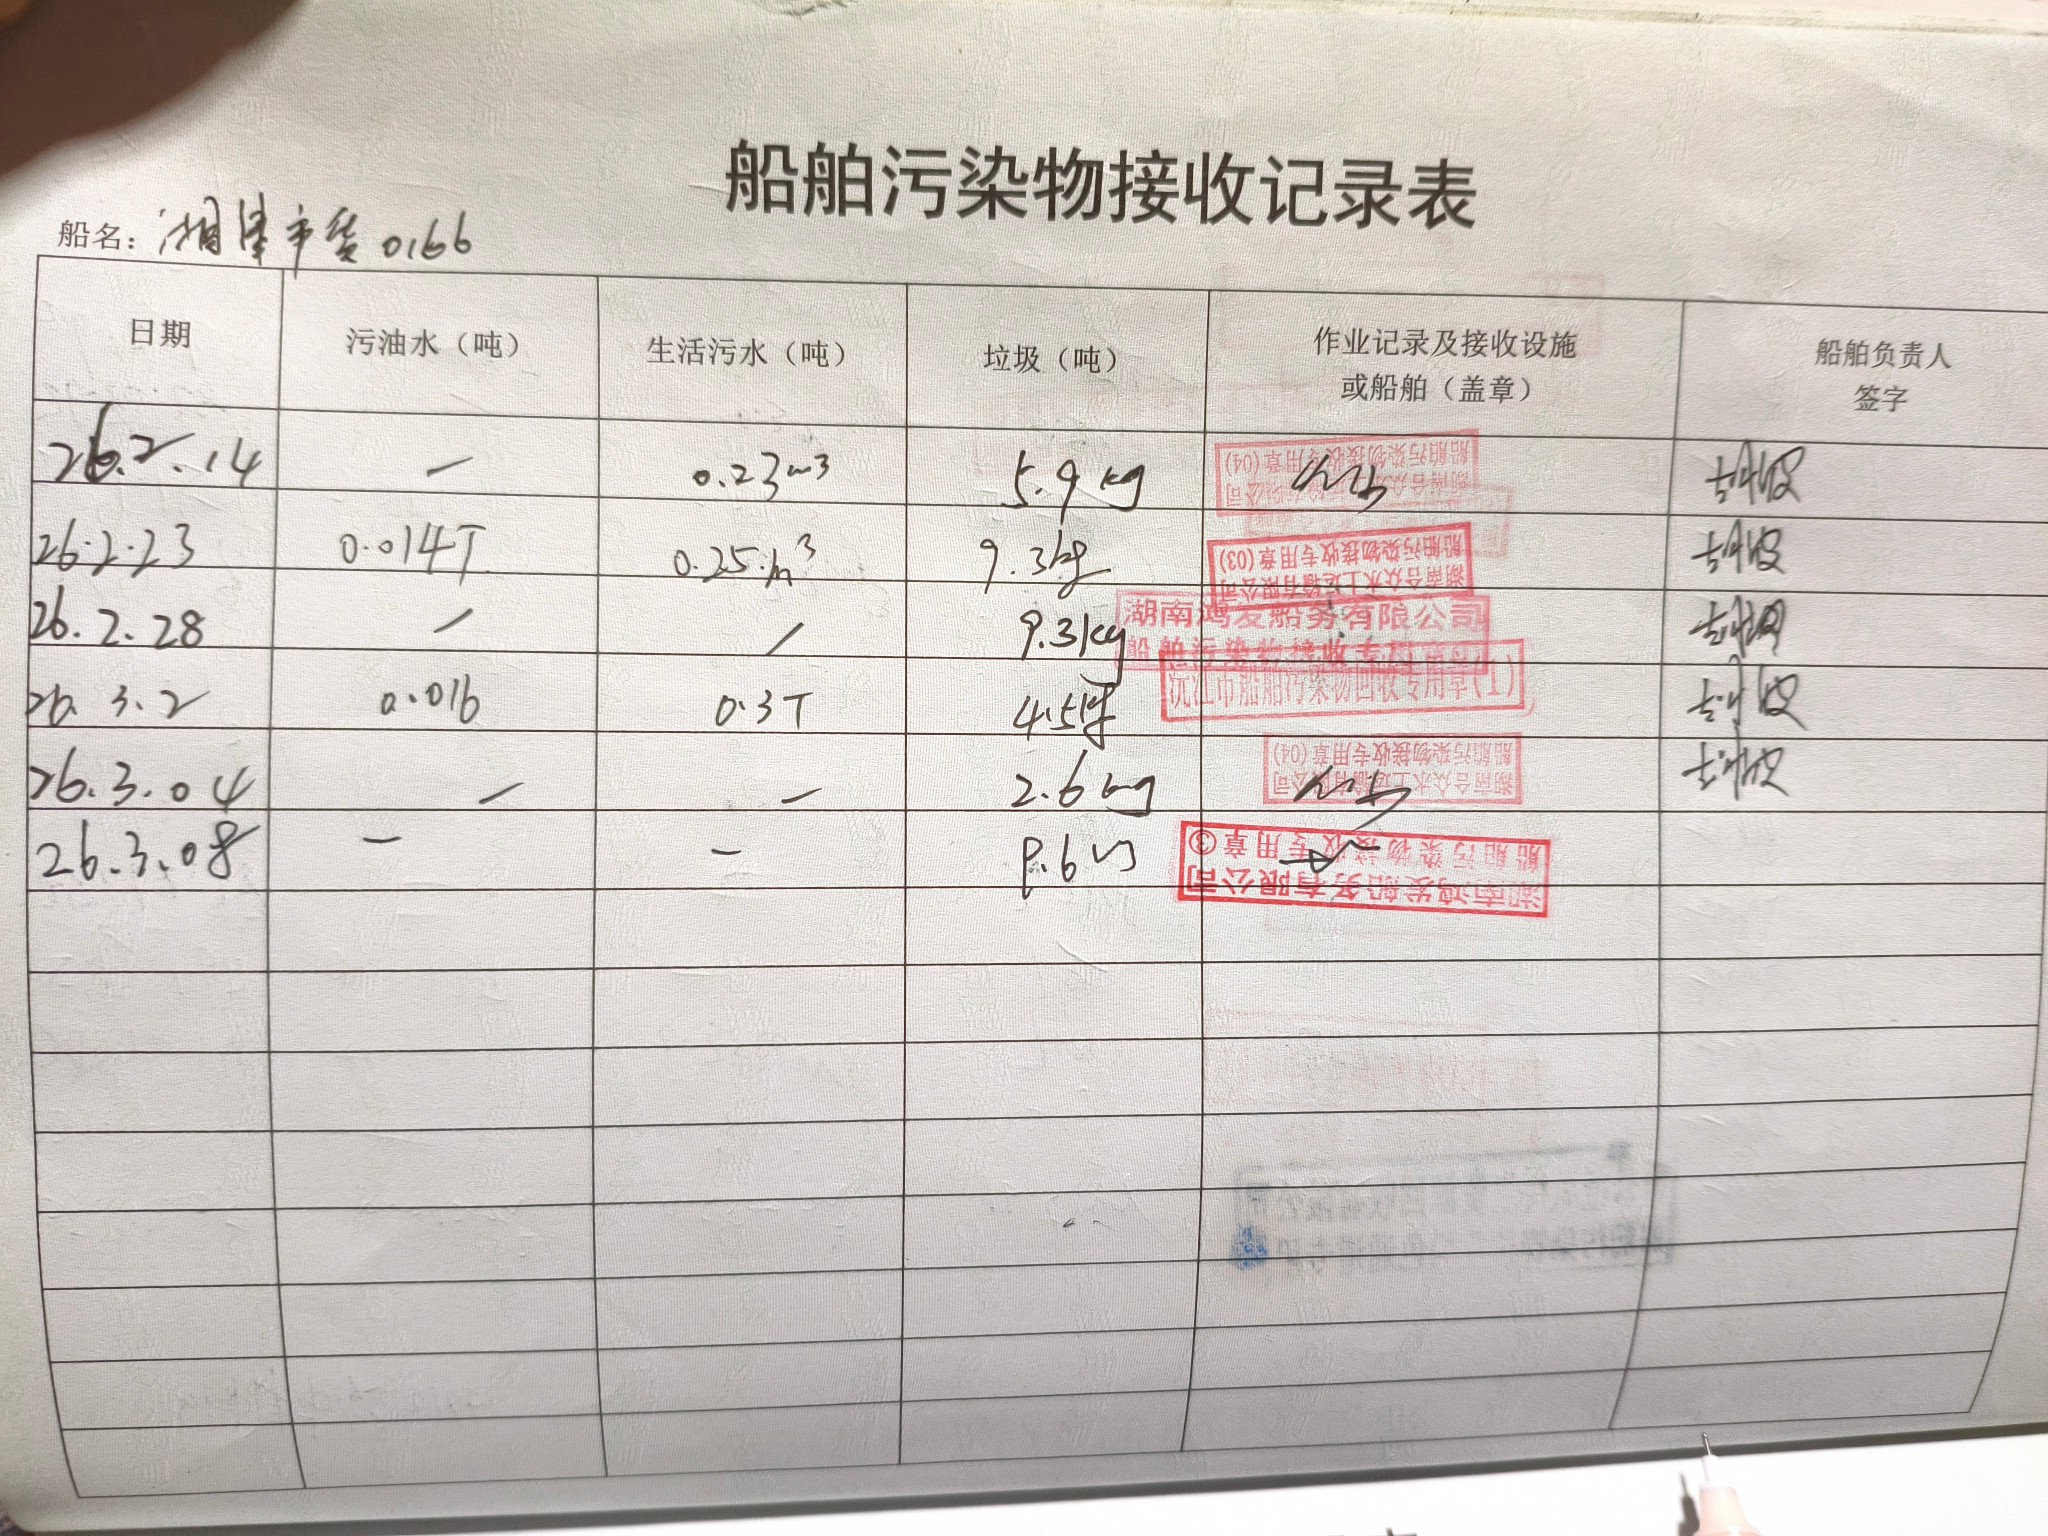 船舶污染物接收记录表
船名: 湘 市货0166
日期 污油水（吨） 生活污水（吨） 垃圾（吨） 作业记录及接收设施 船舶负责人
或船舶（盖章） 签字
26.2.14 — 0.23m³ 5.9kg
船舶污染物接收专用章(04)
湖南合众水上运输有限公司
26.2.23 0.014T 0.25m³ 9.3kg
船舶污染物接收专用章(03)
湖南合众水上运输有限公司
26.2.28 / / 9.3kg
湖南鸿发船务有限公司
船舶污染物接收专用章
26.3.2 0.016 0.3T 4.5kg
沅江市船舶污染物回收专用章(1)
26.3.04 — — 2.6kg
船舶污染物接收专用章(04)
湖南合众水上运输有限公司
26.3.08 — — 8.6
船舶污染物接收专用章③
湖南鸿发船务有限公司